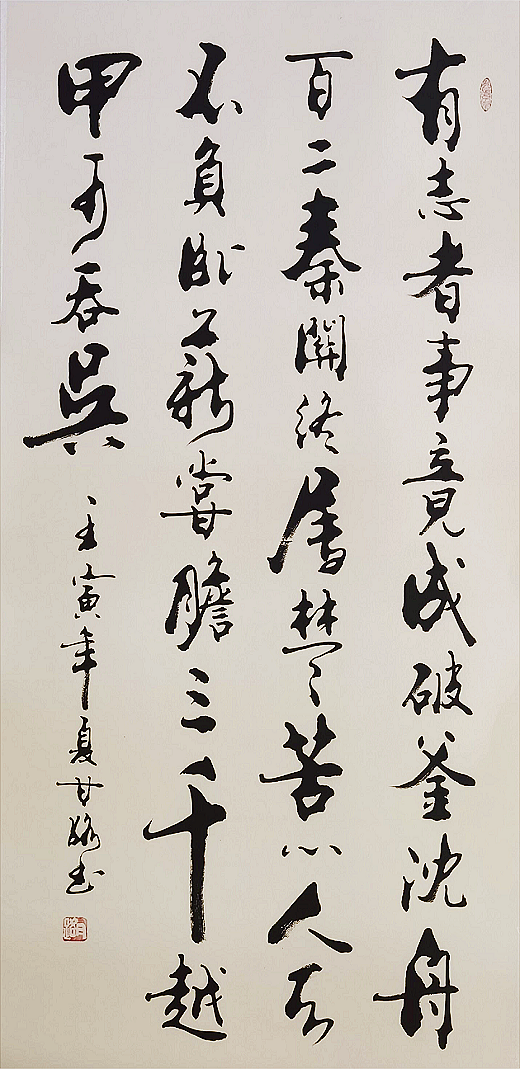 有志者事竟成破釜沈舟
百二秦關終屬楚苦心人天
不負卧薪嘗膽三千越
甲可吞吳
壬寅年夏甘路书